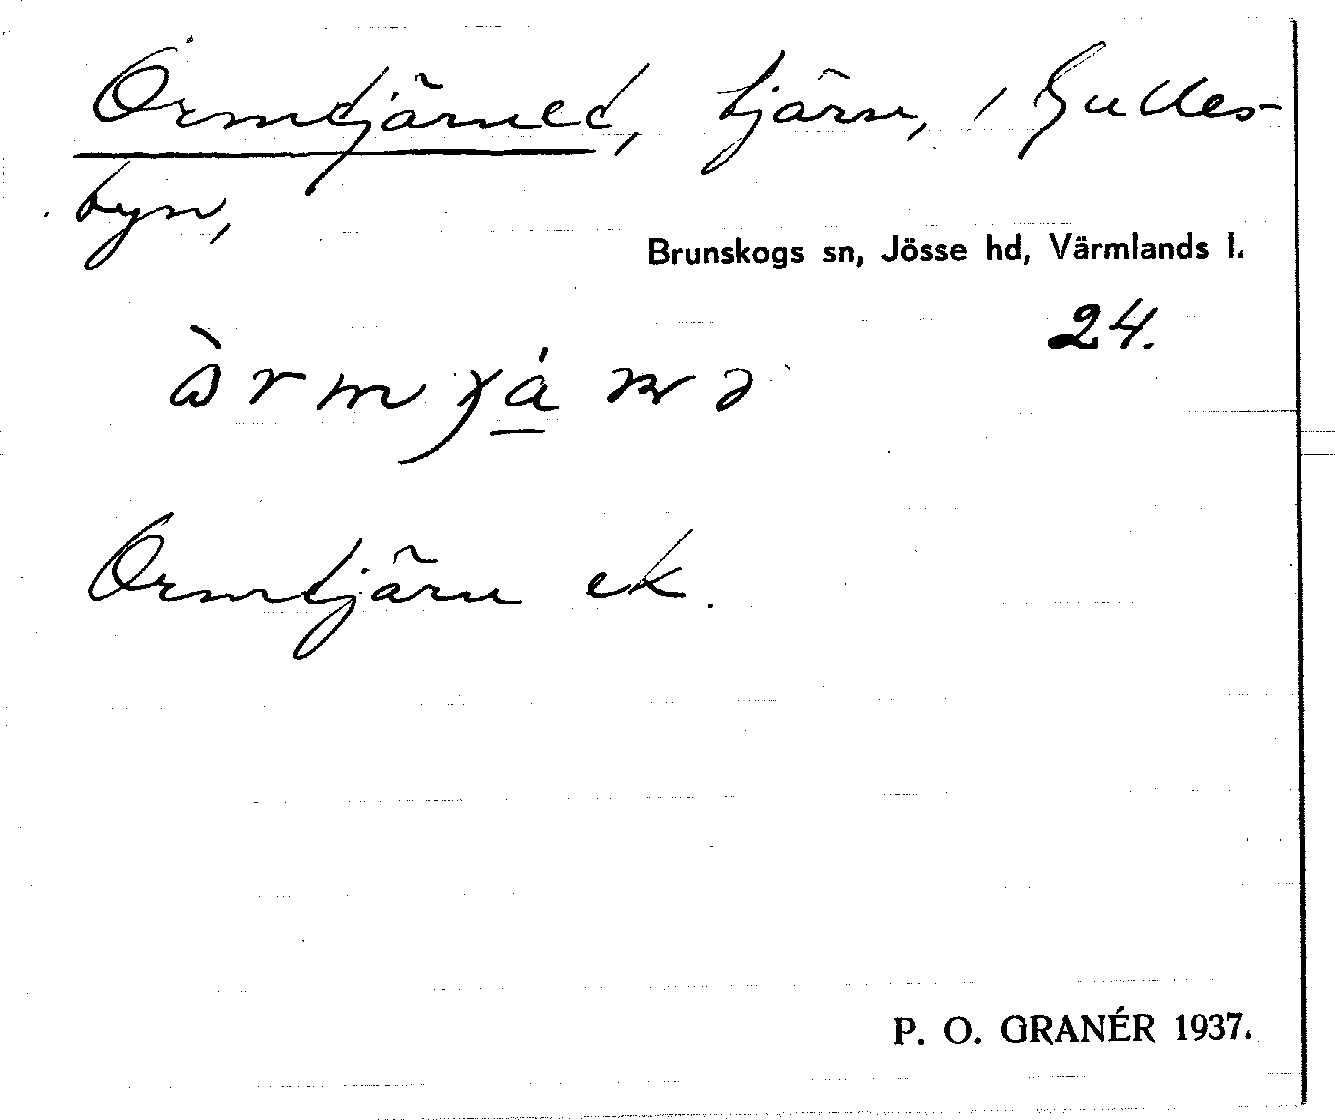 Ormtjärnet, tjärn, i Gulles-
byn,
Brunskogs sn, Jösse hd, Värmlands l.
24.
Ormtjärn ek.
P. O. GRANÉR 1937.